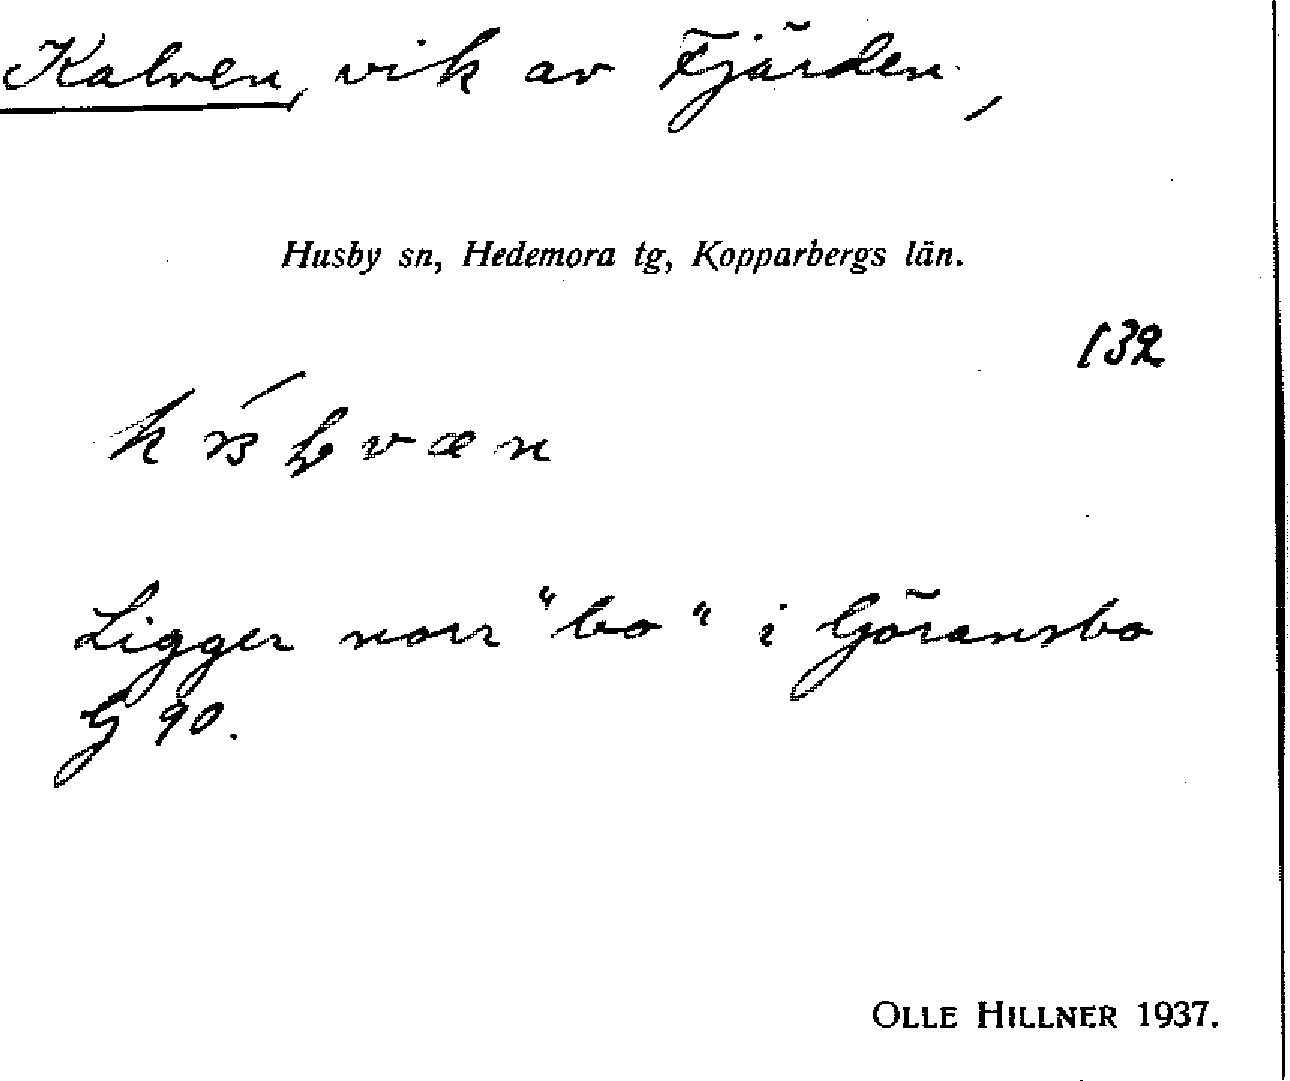 Kalven, vik av Fjärden,
Husby sn, Hedemora tg, Kopparbergs län.
132
Ligger norr "bo" i Göransbo
G 90.
OLLE HILLNER 1937.